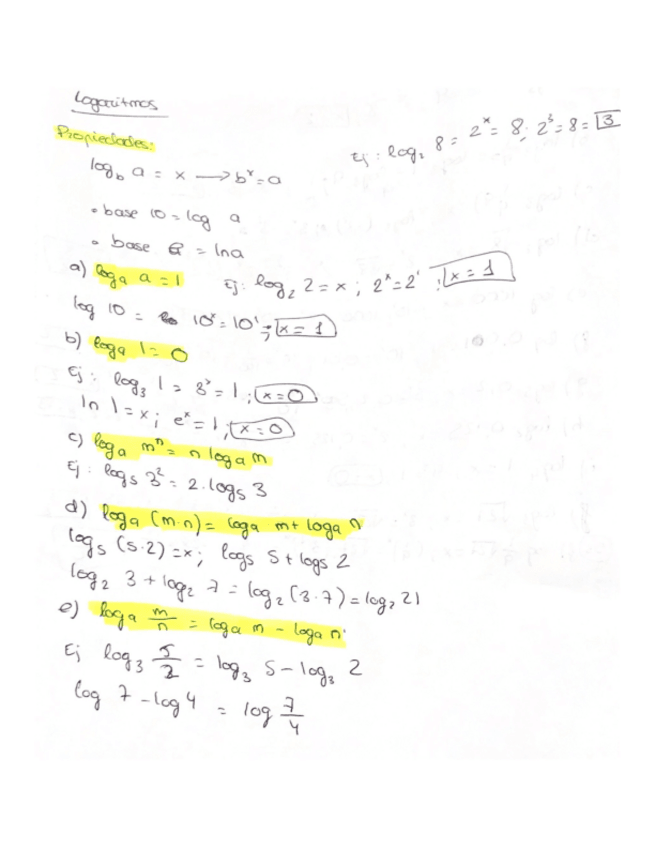 Logaritmos
Propiedades:
log_b a = x ⟶ b^x = a
Ej: log_2 8 = 2^x = 8; 2^3 = 8 = 3
• base 10 = log a
• base e = ln a
a) log_a a = 1
Ej: log_2 2 = x; 2^x = 2^1; x = 1
log 10 = 10^x = 10^1; x = 1
b) log_a 1 = 0
Ej: log_3 1 = 3^x = 1; x = 0
ln 1 = x; e^x = 1; x = 0
c) log_a m^n = n log_a m
Ej: log_5 3^2 = 2 · log_5 3
d) log_a (m·n) = log_a m + log_a n
log_5 (5·2) = x; log_5 5 + log_5 2
log_2 3 + log_2 7 = log_2 (3·7) = log_2 21
e) log_a m/n = log_a m - log_a n
Ej log_3 5/2 = log_3 5 - log_3 2
log 7 - log 4 = log 7/4